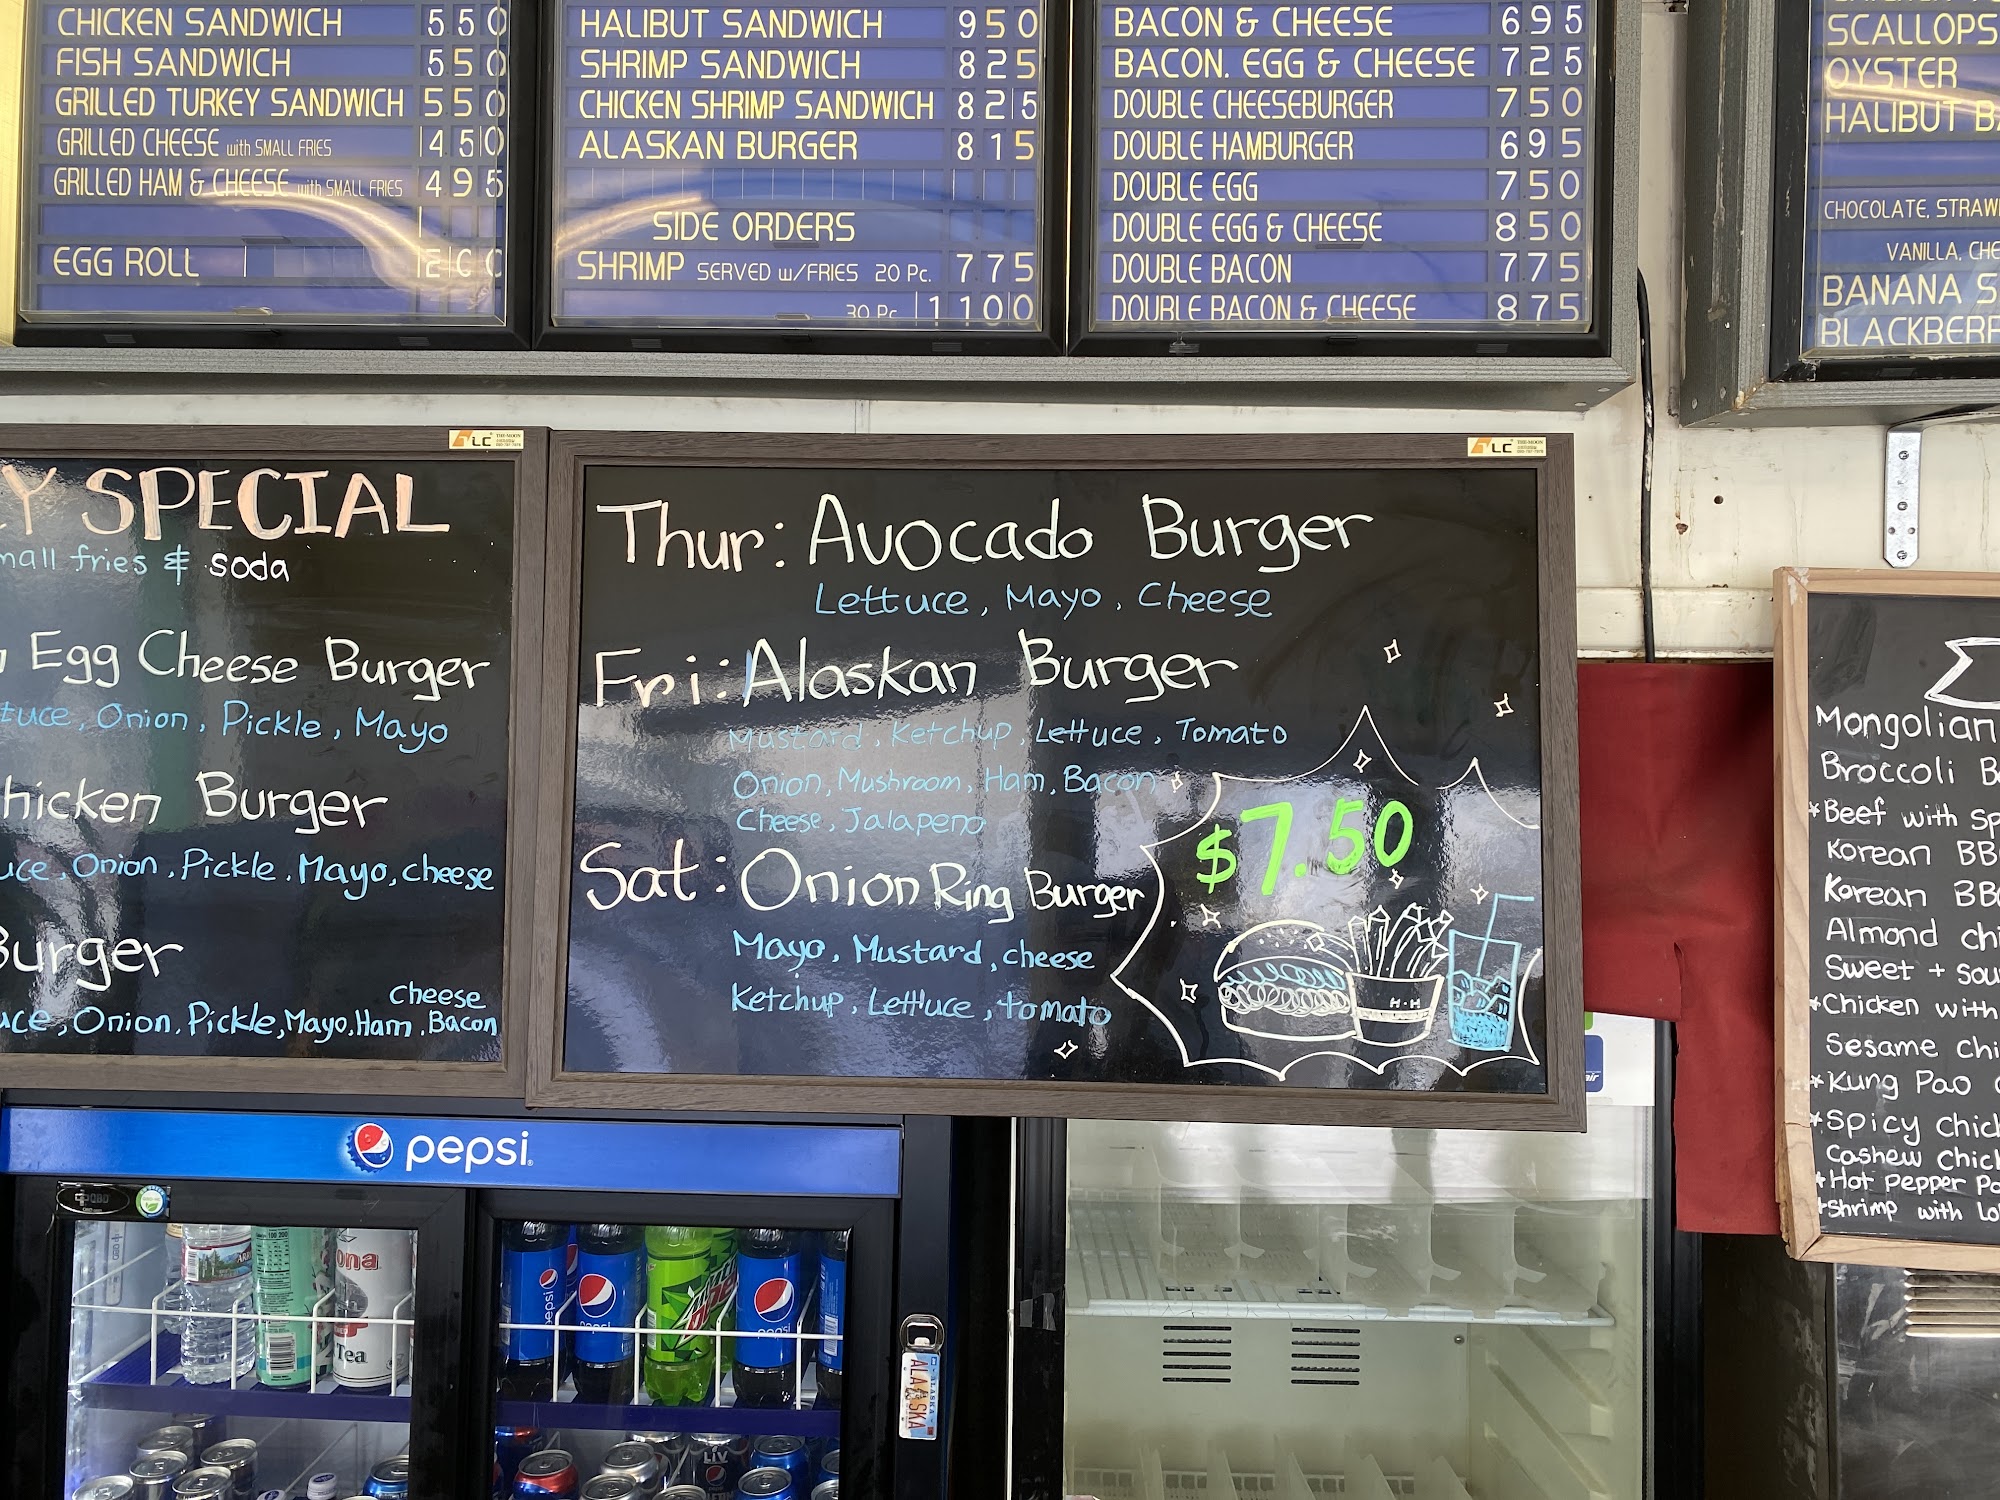 CHICKEN SANDWICH 5 5 0
FISH SANDWICH 5 5 0
GRILLED TURKEY SANDWICH 5 5 0
GRILLED CHEESE with SMALL FRIES 4 5 0
GRILLED HAM & CHEESE with SMALL FRIES 4 9 5
EGG ROLL
HALIBUT SANDWICH 9 5 0
SHRIMP SANDWICH 8 2 5
CHICKEN SHRIMP SANDWICH 8 2 5
ALASKAN BURGER 8 1 5
SIDE ORDERS
SHRIMP SERVED w/FRIES 20 Pc. 7 7 5
30 Pc 11 0 0
BACON & CHEESE 6 9 5
BACON. EGG & CHEESE 7 2 5
DOUBLE CHEESEBURGER 7 5 0
DOUBLE HAMBURGER 6 9 5
DOUBLE EGG 7 5 0
DOUBLE EGG & CHEESE 8 5 0
DOUBLE BACON 7 7 5
DOUBLE BACON & CHEESE 8 7 5
SCALLOPS
OYSTER
HALIBUT
CHOCOLATE, STRAW
VANILLA, CHE
BANANA S
BLACKBERR
LY SPECIAL
mall fries & soda
Egg Cheese Burger
tuce, Onion, Pickle, Mayo
hicken Burger
uce, Onion, Pickle, Mayo, cheese
Burger
cheese
uce, Onion, Pickle, Mayo, Ham, Bacon
TLC THE-MOON
TLC THE-MOON
Thur: Avocado Burger
Lettuce, Mayo, Cheese
Fri: Alaskan Burger
Mustard, Ketchup, Lettuce, Tomato
Onion, Mushroom, Ham, Bacon
Cheese, Jalapeno
Sat: Onion Ring Burger
Mayo, Mustard, cheese
Ketchup, Lettuce, tomato
$7.50
H·H
Mongolian
Broccoli B
*Beef with Sp
Korean BB
Korean BB
Almond chi
Sweet + sou
*Chicken with
Sesame chi
*Kung Pao
*Spicy Chick
Cashew Chick
*Hot Pepper Po
*Shrimp with Lo
pepsi
QBD
ona
Tea
pepsi
pepsi
pepsi
ALASKA